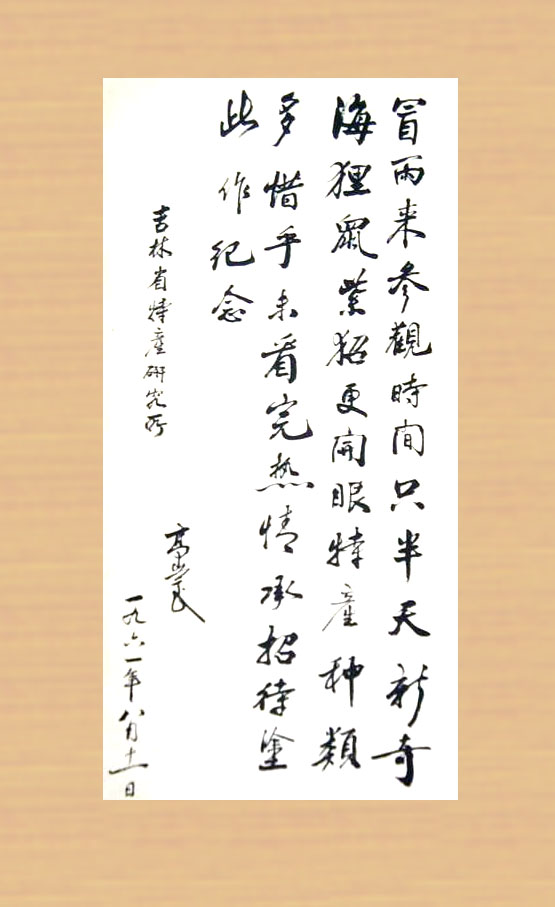 冒雨来参觀時间只半天新奇
海狸鼠紫貂更开眼特産种類
多惜乎未看完热情承招待塗
此作纪念
吉林省特産研究所
高崇民
一九六一年八月十一日